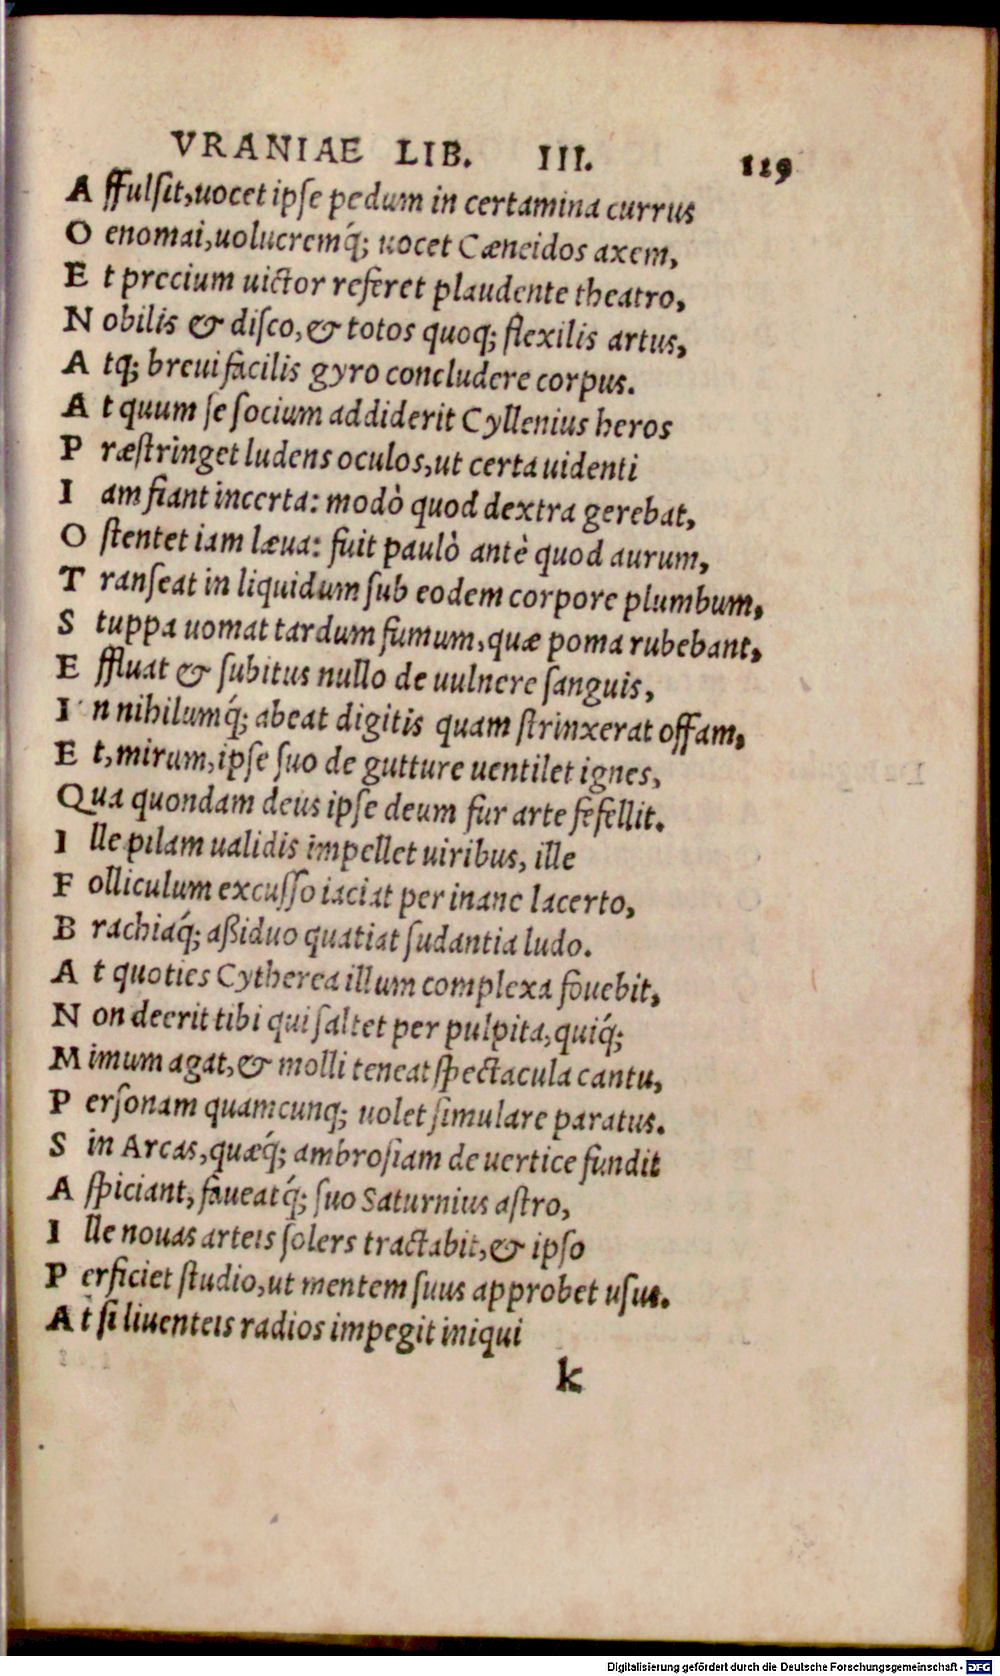 VRANIAE LIB. III. 129
A ffulſit, uocet ipſe pedum in certamina currus
O enomai, uolucremq́; uocet Cæneidos axem,
E t precium uictor referet plaudente theatro,
N obilis & diſco, & totos quoq; flexilis artus,
A tq; breui facilis gyro concludere corpus.
A t quum ſe ſocium addiderit Cyllenius heros
P ræſtringet ludens oculos, ut certa uidenti
I am fiant incerta: modò quod dextra gerebat,
O ſtentet iam læua: fuit paulò antè quod aurum,
T ranſeat in liquidum ſub eodem corpore plumbum,
S tuppa uomat tardum fumum, quæ poma rubebant,
E ffluat & ſubitus nullo de uulnere ſanguis,
I n nihilumq́; abeat digitis quam ſtrinxerat offam,
E t, mirum, ipſe ſuo de gutture uentilet ignes,
Qua quondam deus ipſe deum fur arte fefellit.
I lle pilam ualidis impellet uiribus, ille
F olliculum excuſſo iaciat per inane lacerto,
B rachiaq́; aßiduo quatiat ſudantia ludo.
A t quoties Cytherea illum complexa fouebit,
N on deerit tibi qui ſaltet per pulpita, quiq́;
M imum agat, & molli teneat ſpectacula cantu,
P erſonam quamcunq; uolet ſimulare paratus.
S in Arcas, quæq́; ambroſiam de uertice fundit
A ſpiciant, faueatq́; ſuo Saturnius aſtro,
I lle nouas arteis ſolers tractabit, & ipſo
P erficiet ſtudio, ut mentem ſuus approbet uſus.
A t ſi liuenteis radios impegit iniqui
k
Digitalisierung gefördert durch die Deutsche Forschungsgemeinschaft - DFG